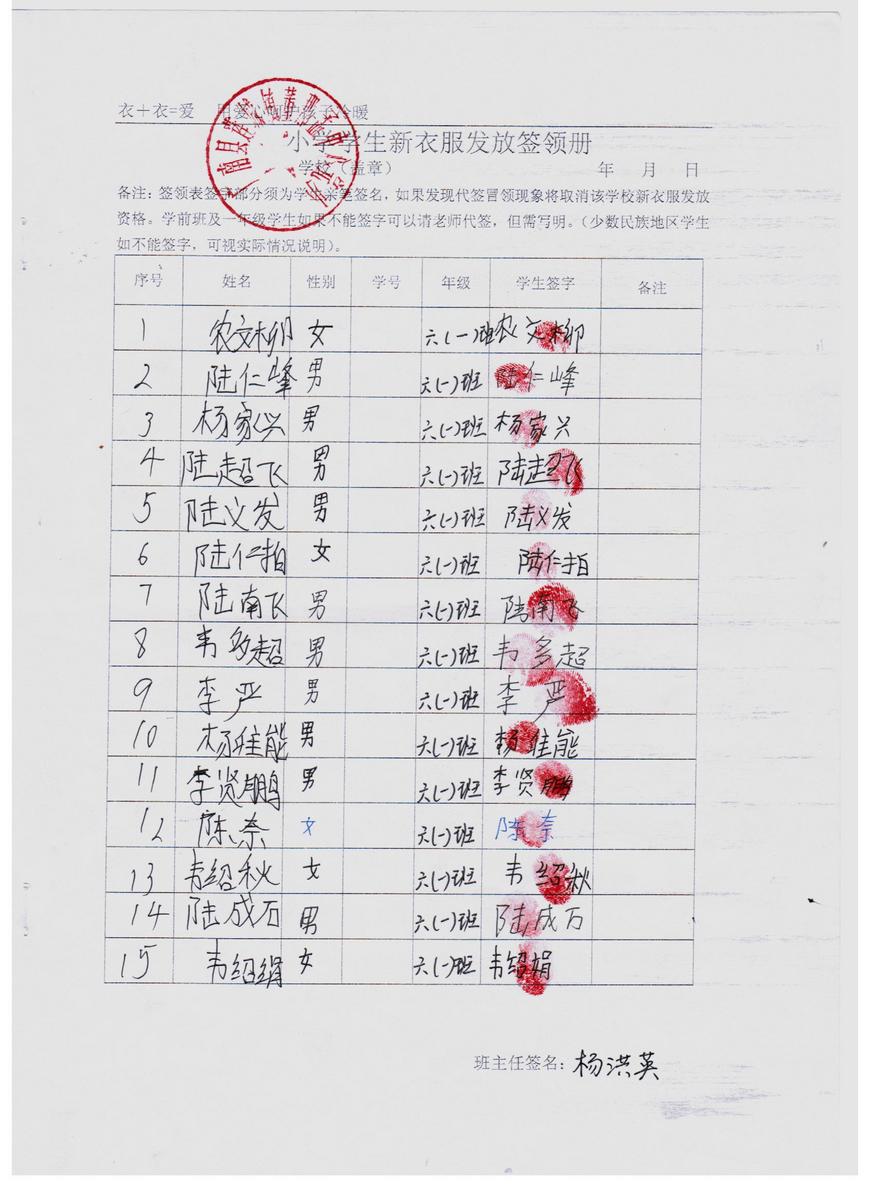 衣+衣=爱 用爱心呵护孩子冷暖
小学学生新衣服发放签领册
学校(盖章) 年 月 日
备注:签领表签字部分须为学生亲笔签名,如果发现代签冒领现象将取消该学校新衣服发放
资格。学前班及一年级学生如果不能签字可以请老师代签,但需写明。(少数民族地区学生
如不能签字,可视实际情况说明)。
序号 姓名 性别 学号 年级 学生签字 备注
1 农文柳 女 六(一)班 农文柳
2 陆仁峰 男 六(一)班 陆仁峰
3 杨家兴 男 六(一)班 杨家兴
4 陆超飞 男 六(一)班 陆超飞
5 陆义发 男 六(一)班 陆义发
6 陆仁拍 女 六(一)班 陆仁拍
7 陆南飞 男 六(一)班 陆南飞
8 韦多超 男 六(一)班 韦多超
9 李严 男 六(一)班 李严
10 杨佳能 男 六(一)班 杨佳能
11 李贤鹏 男 六(一)班 李贤鹏
12 陈奈 女 六(一)班 陈奈
13 韦绍秋 女 六(一)班 韦绍秋
14 陆成石 男 六(一)班 陆成万
15 韦绍绢 女 六(一)班 韦绍娟
班主任签名:杨洪英